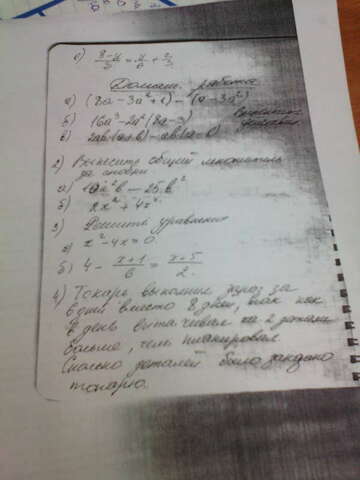 с) (8-y)/3 = y/6 + 2/3
Домашн. работа
а) (8a - 3a² + 1) - (a - 3a²)
б) 16a³ - 2a² (8a - 3)
в) 2ab (a+b) - ab (a-b)
2) Вынесите общий множитель
за скобки
а) 10a²b - 25b²
б) 2x² + 4x
3) Решить уравнения
а) x² - 4x = 0
б) 4 - (x+1)/6 = (x+5)/2
4) Токарь выполнил заказ за
6 дней вместо 8 дней, так как
в день вытачивал на 2 детали
больше, чем планировал.
Сколько деталей было заказано
токарю.